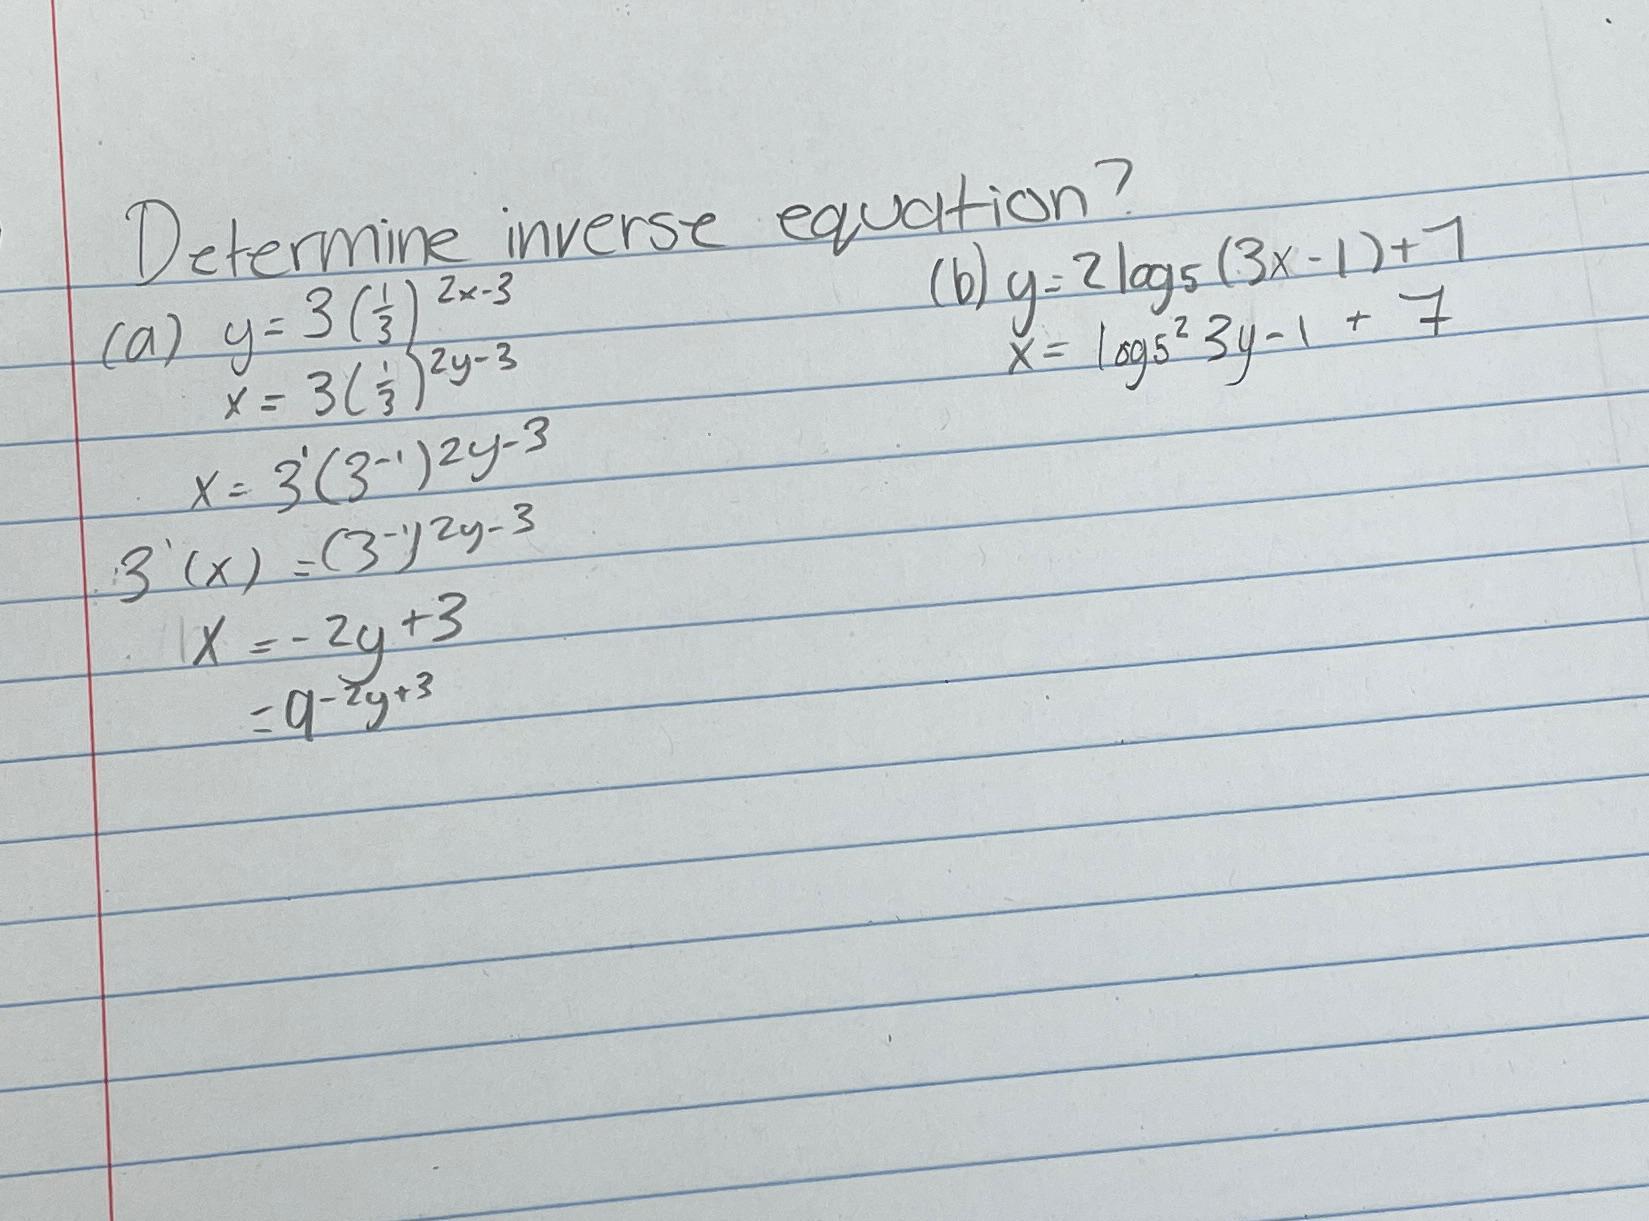 Determine inverse equation?
(a) y = 3(1/3)^2x-3
x = 3(1/3)^2y-3
x = 3^1(3^-1)^2y-3
3^1(x) = (3^-1)^2y-3
x = -2y+3
= 9^-2y+3
(b) y = 2 log5 (3x-1)+7
x = log5^2 3y-1 + 7